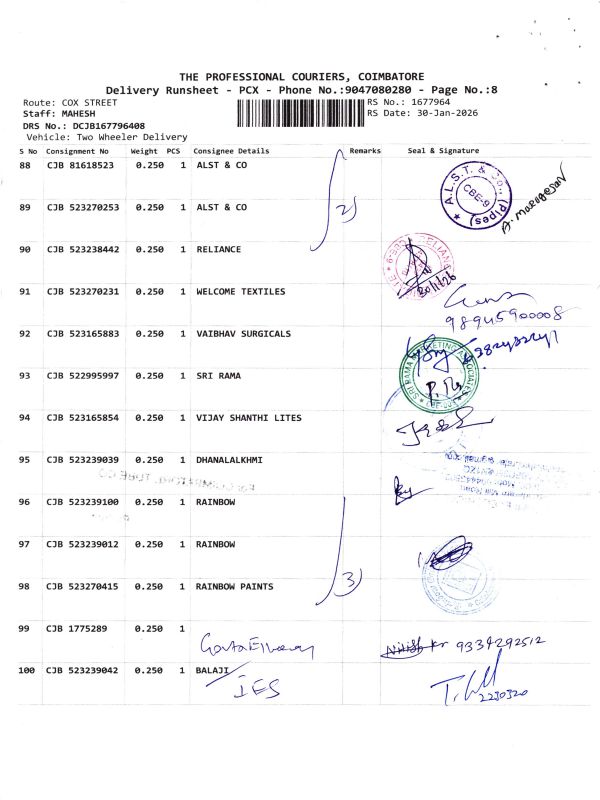 THE PROFESSIONAL COURIERS, COIMBATORE
Delivery Runsheet - PCX - Phone No.:9047080280 - Page No.:8
Route: COX STREET RS No.: 1677964
Staff: MAHESH RS Date: 30-Jan-2026
DRS No.: DCJB167796408
Vehicle: Two Wheeler Delivery
S No Consignment No Weight PCS Consignee Details Remarks Seal & Signature
88 CJB 81618523 0.250 1 ALST & CO
A.L.S.T. & Co., (Pipes) CBE-9
89 CJB 523270253 0.250 1 ALST & CO 2)
90 CJB 523238442 0.250 1 RELIANCE
30/1/26
91 CJB 523270231 0.250 1 WELCOME TEXTILES
9894590008
92 CJB 523165883 0.250 1 VAIBHAV SURGICALS
93 CJB 522995997 0.250 1 SRI RAMA
SRI RAMA MARKETING ASSOCIATES
94 CJB 523165854 0.250 1 VIJAY SHANTHI LITES
95 CJB 523239039 0.250 1 DHANALALKHMI
96 CJB 523239100 0.250 1 RAINBOW
97 CJB 523239012 0.250 1 RAINBOW
98 CJB 523270415 0.250 1 RAINBOW PAINTS 3)
99 CJB 1775289 0.250 1
Nitish kr 9334292512
100 CJB 523239042 0.250 1 BALAJI
IES
2230320